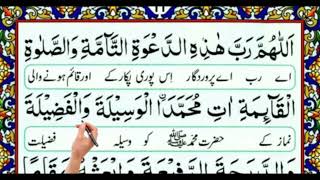 اَللّٰهُمَّ رَبَّ هٰذِهِ الدَّعْوَةِ التَّآمَّةِ وَالصَّلٰوةِ
اے رب اے پروردگار اِس پوری پکار کے اور قائم ہونے والی
الْقَآئِمَةِ اٰتِ مُحَمَّدَ اۨ الْوَسِيْلَةَ وَالْفَضِيْلَةَ
نماز کے حضرت محمد ﷺ کو وسیلہ فضیلت
وَالدَّرَجَةَ الرَّفِيْعَةَ وَابْعَثْهُ مَقَامًا